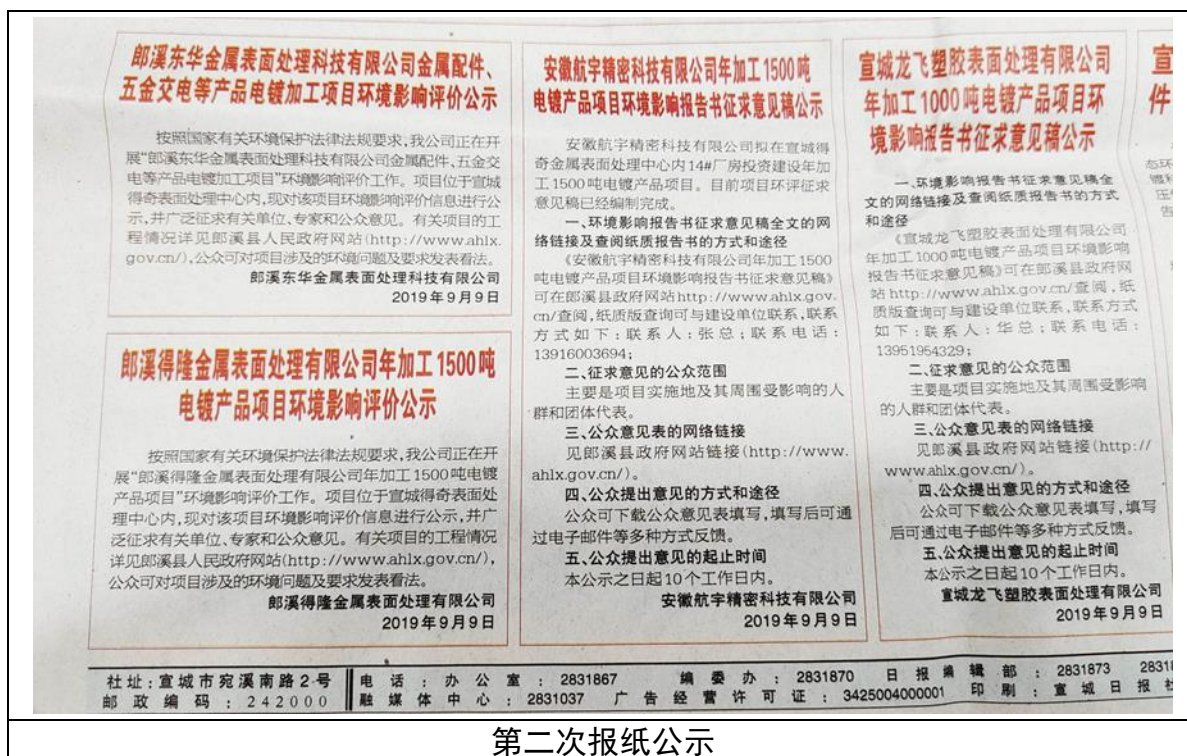 郎溪东华金属表面处理科技有限公司金属配件、
五金交电等产品电镀加工项目环境影响评价公示
按照国家有关环境保护法律法规要求,我公司正在开
展“郎溪东华金属表面处理科技有限公司金属配件、五金交
电等产品电镀加工项目”环境影响评价工作。项目位于宣城
得奇表面处理中心内,现对该项目环境影响评价信息进行公
示,并广泛征求有关单位、专家和公众意见。有关项目的工
程情况详见郎溪县人民政府网站(http://www.ahlx.
gov.cn/),公众可对项目涉及的环境问题及要求发表看法。
郎溪东华金属表面处理科技有限公司
2019年9月9日
郎溪得隆金属表面处理有限公司年加工1500吨
电镀产品项目环境影响评价公示
按照国家有关环境保护法律法规要求,我公司正在开
展“郎溪得隆金属表面处理有限公司年加工1500吨电镀
产品项目”环境影响评价工作。项目位于宣城得奇表面处
理中心内,现对该项目环境影响评价信息进行公示,并广
泛征求有关单位、专家和公众意见。有关项目的工程情况
详见郎溪县人民政府网站(http://www.ahlx.gov.cn/),
公众可对项目涉及的环境问题及要求发表看法。
郎溪得隆金属表面处理有限公司
2019年9月9日
安徽航宇精密科技有限公司年加工1500吨
电镀产品项目环境影响报告书征求意见稿公示
安徽航宇精密科技有限公司拟在宣城得
奇金属表面处理中心内14#厂房投资建设年加
工1500吨电镀产品项目。目前项目环评征求
意见稿已经编制完成。
一、环境影响报告书征求意见稿全文的网
络链接及查阅纸质报告书的方式和途径
《安徽航宇精密科技有限公司年加工1500
吨电镀产品项目环境影响报告书征求意见稿》
可在郎溪县政府网站http://www.ahlx.gov.
cn/查阅,纸质版查询可与建设单位联系,联系
方式如下:联系人:张总;联系电话:
13916003694;
二、征求意见的公众范围
主要是项目实施地及其周围受影响的人
群和团体代表。
三、公众意见表的网络链接
见郎溪县政府网站链接(http://www.
ahlx.gov.cn/)。
四、公众提出意见的方式和途径
公众可下载公众意见表填写,填写后可通
过电子邮件等多种方式反馈。
五、公众提出意见的起止时间
本公示之日起10个工作日内。
安徽航宇精密科技有限公司
2019年9月9日
宣城龙飞塑胶表面处理有限公司
年加工1000吨电镀产品项目环
境影响报告书征求意见稿公示
一、环境影响报告书征求意见稿全
文的网络链接及查阅纸质报告书的方式
和途径
《宣城龙飞塑胶表面处理有限公司
年加工1000吨电镀产品项目环境影响
报告书征求意见稿》可在郎溪县政府网
站http://www.ahlx.gov.cn/查阅,纸
质版查询可与建设单位联系,联系方式
如下:联系人:华总;联系电话:
13951954329;
二、征求意见的公众范围
主要是项目实施地及其周围受影响
的人群和团体代表。
三、公众意见表的网络链接
见郎溪县政府网站链接(http://
www.ahlx.gov.cn/)。
四、公众提出意见的方式和途径
公众可下载公众意见表填写,填写
后可通过电子邮件等多种方式反馈。
五、公众提出意见的起止时间
本公示之日起10个工作日内。
宣城龙飞塑胶表面处理有限公司
2019年9月9日
宣
件
态环
告
社址:宣城市宛溪南路2号 电话:办公室:2831867 编委办:2831870 日报编辑部:2831873
邮政编码:242000 融媒体中心:2831037 广告经营许可证:3425004000001 印刷:宣城日报社
第二次报纸公示